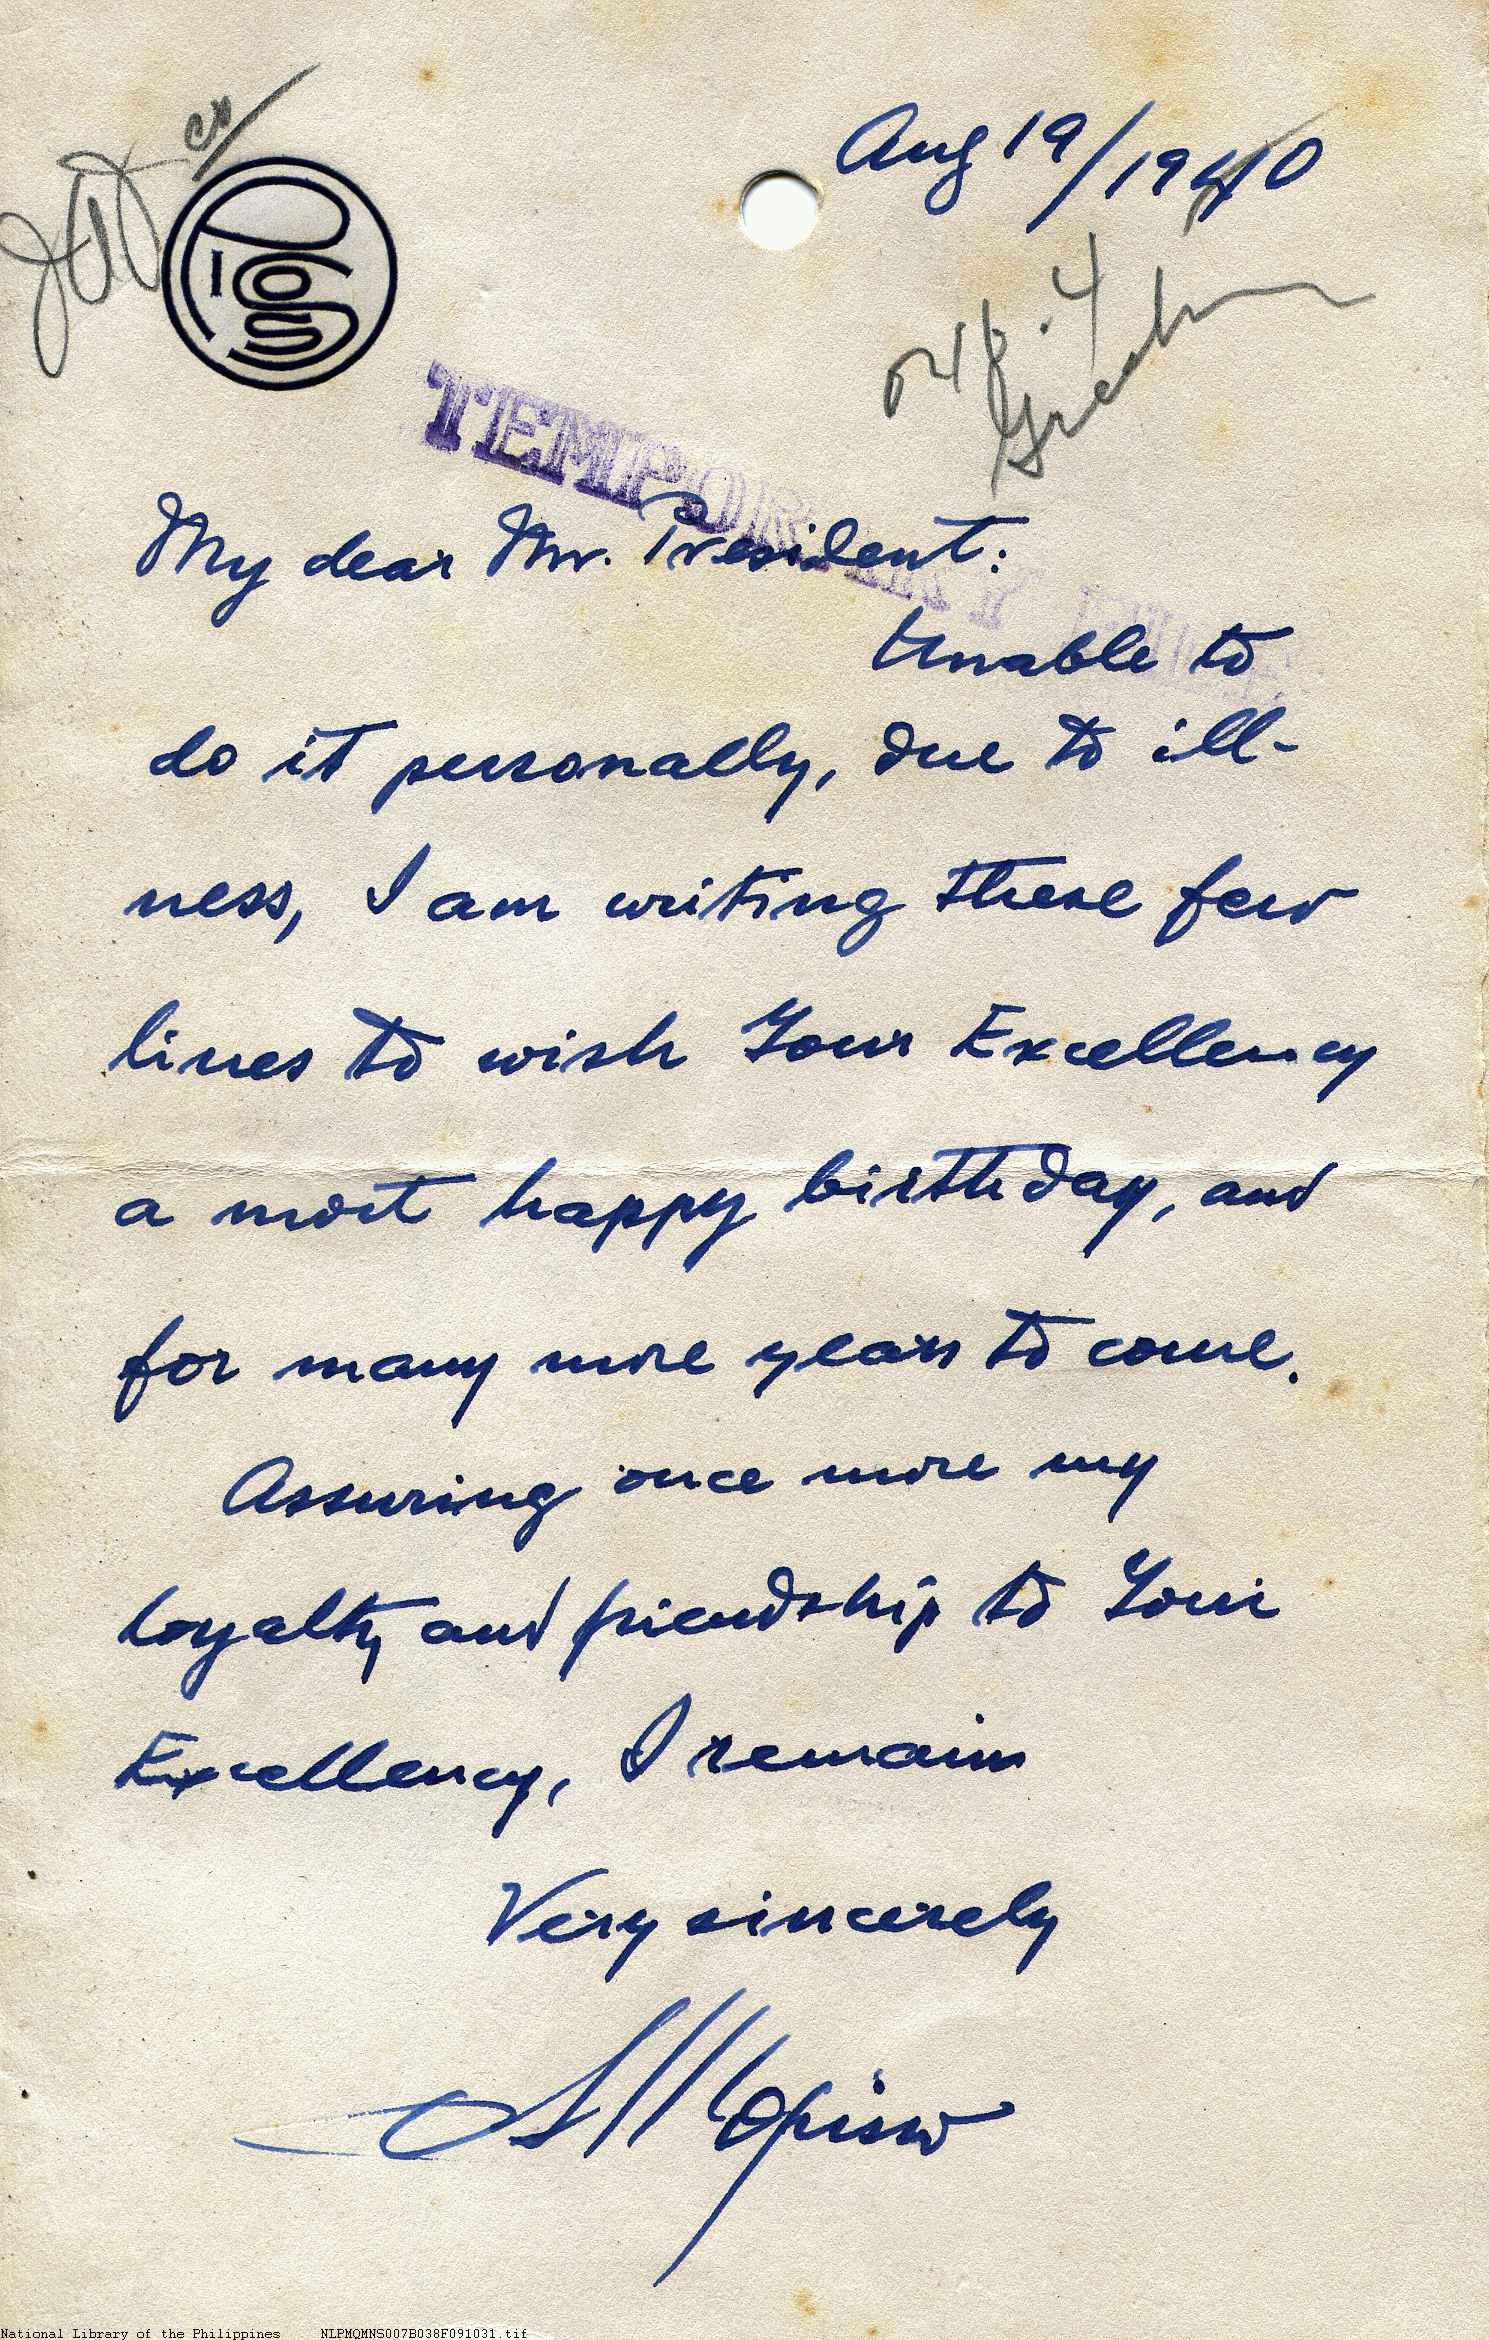 Aug 19/1940
PICOS
TEMPORARY FILE
My dear Mr. President:
Unable to
do it personally, due to ill-
ness, I am writing these few
lines to wish Your Excellency
a most happy birthday, and
for many more years to come.
Assuring once more my
loyalty and friendship to Your
Excellency, I remain
Very sincerely
National Library of the Philippines NLPMQMNS007B038F091031.tif